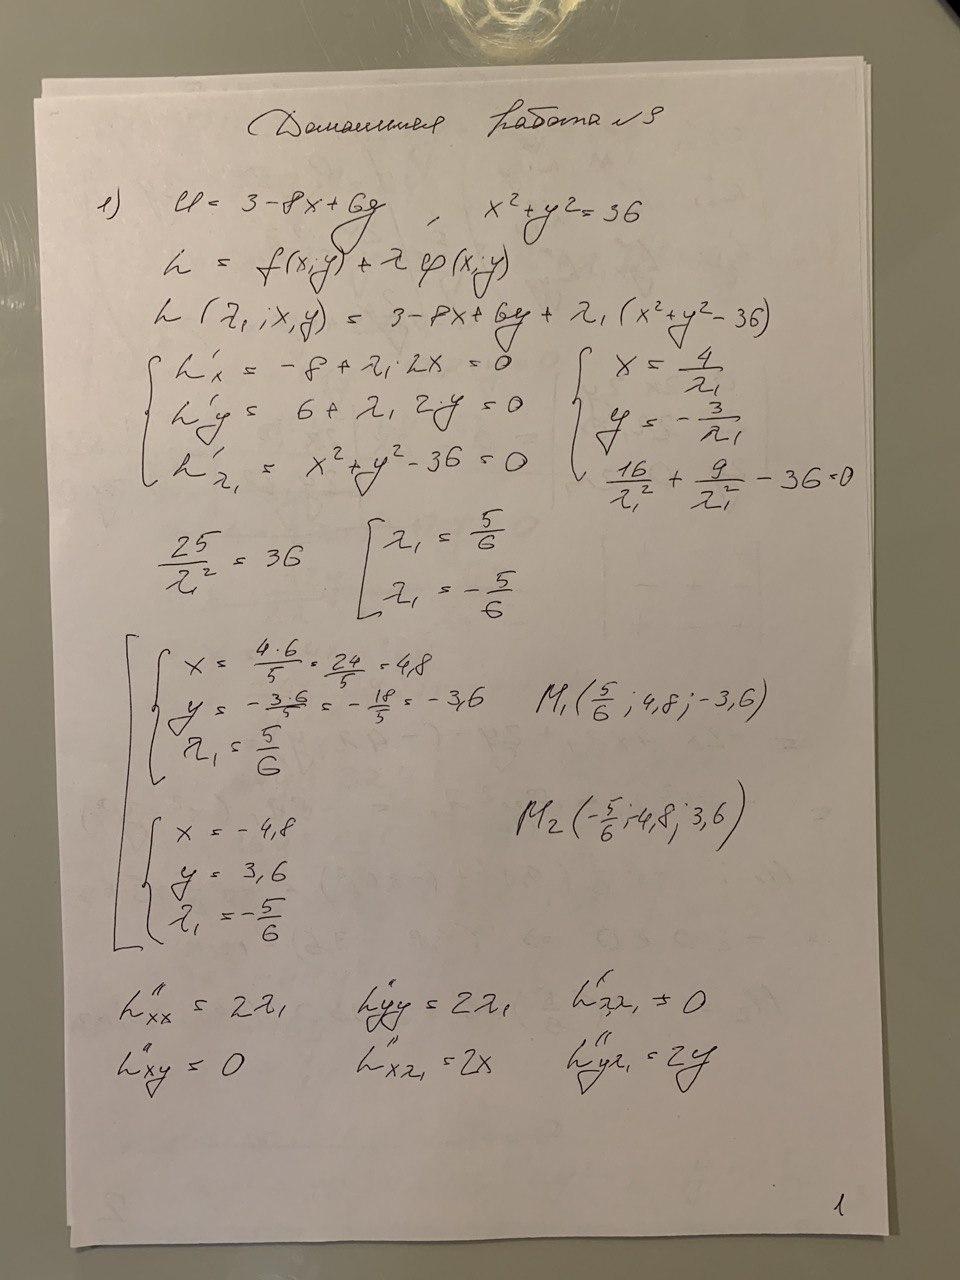 Домашняя работа №9
1) U = 3-8x+6y , x²+y²=36
L = f(x;y) + λ φ(x;y)
L (λ₁; x, y) = 3-8x+6y + λ₁ (x²+y²-36)
{ L'x = -8 + λ₁·2x = 0 { x = 4/λ₁
L'y = 6 + λ₁ 2·y = 0 y = -3/λ₁
L'λ₁ = x²+y²-36 = 0 16/λ₁² + 9/λ₁² - 36=0
25/λ² = 36 [ λ₁ = 5/6
λ₁ = -5/6
[ { x = 4·6/5 = 24/5 = 4,8
y = -3·6/5 = -18/5 = -3,6 M₁(5/6; 4,8; -3,6)
λ₁ = 5/6
{ x = -4,8 M₂(-5/6; -4,8; 3,6)
y = 3,6
λ₁ = -5/6
L''xx = 2λ₁ L''yy = 2λ₁ L''λ₁λ₁ = 0
L''xy = 0 L''xλ₁ = 2x L''yλ₁ = 2y
1